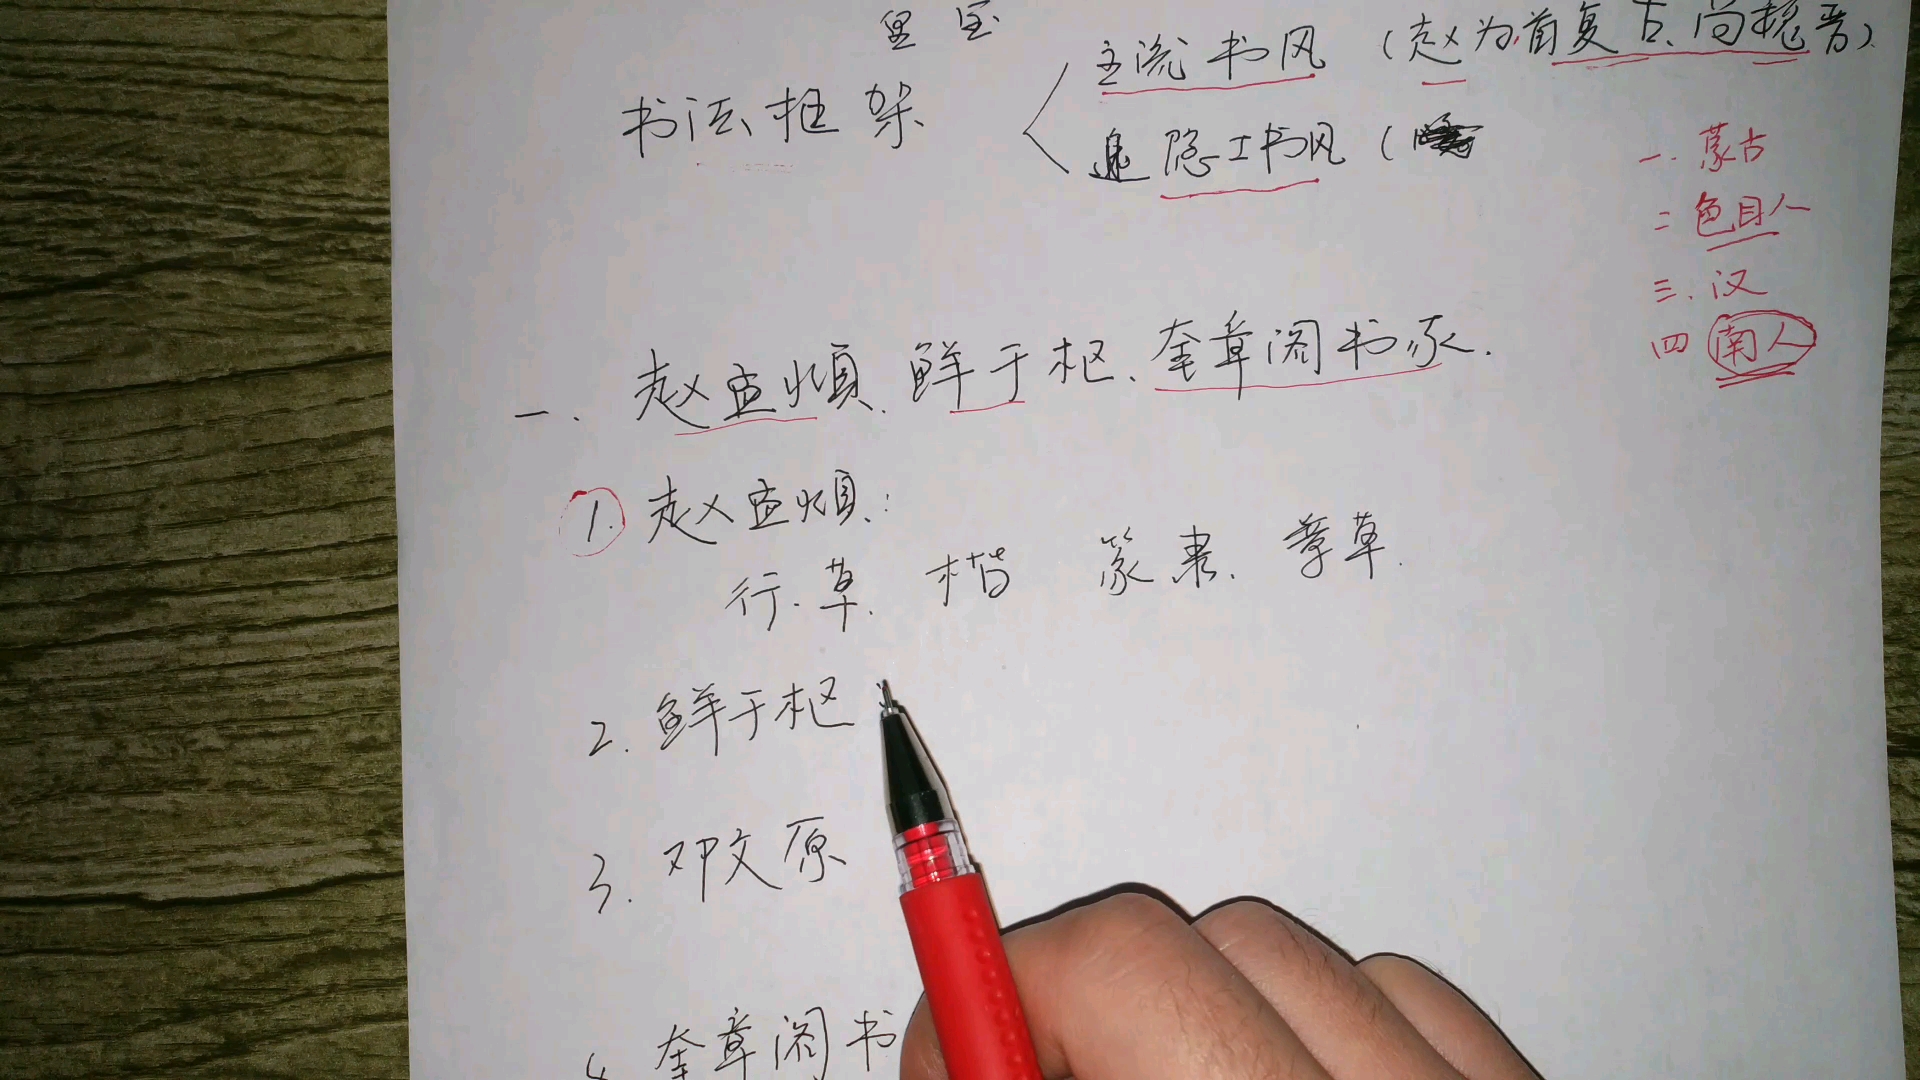 主流书风（赵为首复古、尚魏晋）
书法框架
隐士书风（
一.蒙古
二色目人
三.汉
四南人
一.赵孟頫、鲜于枢、奎章阁书家.
1.赵孟頫:
行.草. 楷 篆隶. 章草.
2.鲜于枢
3.邓文原
4奎章阁书